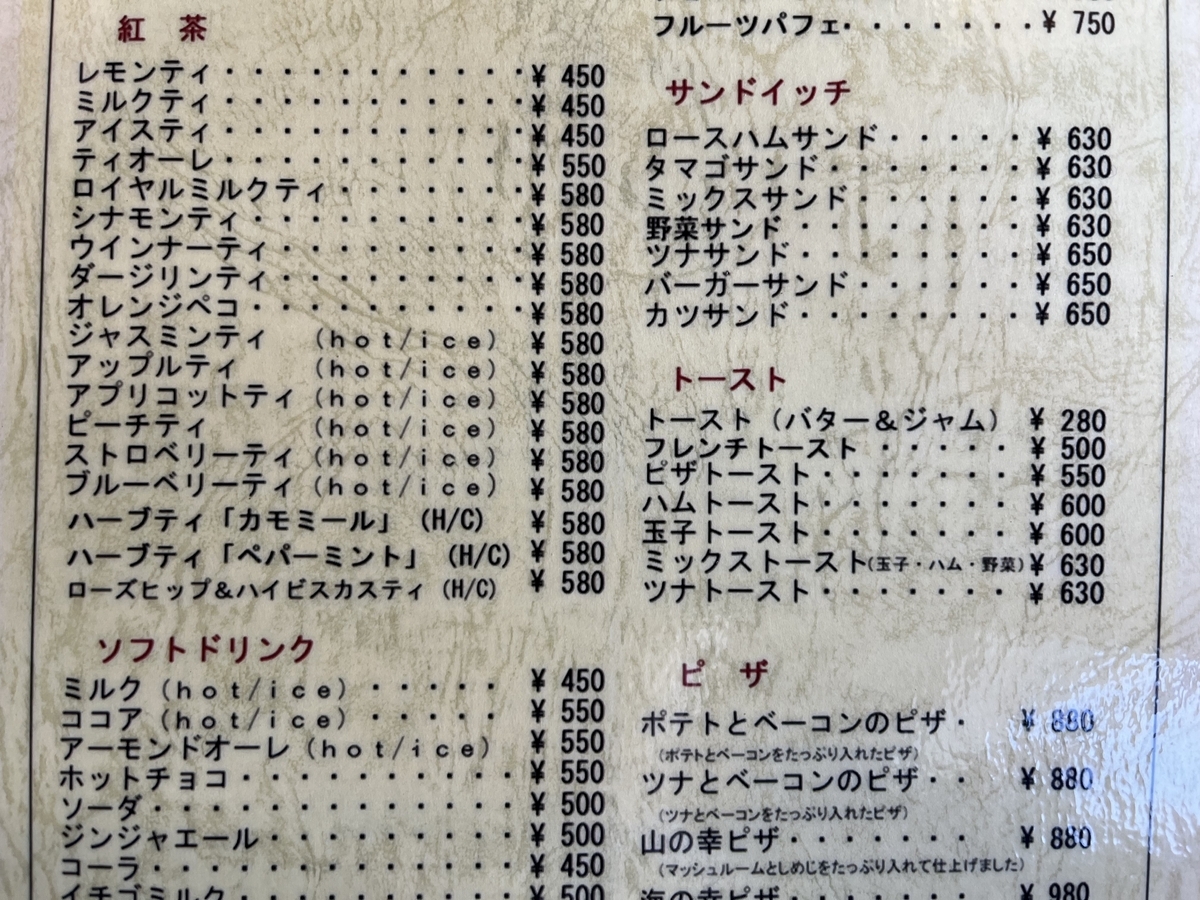 紅　茶
レモンティ・・・・・・・・・・・¥ 450
ミルクティ・・・・・・・・・・・¥ 450
アイスティ・・・・・・・・・・・¥ 450
ティオーレ・・・・・・・・・・・¥ 550
ロイヤルミルクティ・・・・・・・¥ 580
シナモンティ・・・・・・・・・・¥ 580
ウインナーティ・・・・・・・・・¥ 580
ダージリンティ・・・・・・・・・¥ 580
オレンジペコ・・・・・・・・・・¥ 580
ジャスミンティ　(hot/ice) ¥ 580
アップルティ　　(hot/ice) ¥ 580
アプリコットティ (hot/ice) ¥ 580
ピーチティ　　　(hot/ice) ¥ 580
ストロベリーティ (hot/ice) ¥ 580
ブルーベリーティ (hot/ice) ¥ 580
ハーブティ「カモミール」 (H/C) ¥ 580
ハーブティ「ペパーミント」 (H/C) ¥ 580
ローズヒップ＆ハイビスカスティ (H/C) ¥ 580
ソフトドリンク
ミルク (hot/ice) ・・・・・ ¥ 450
ココア (hot/ice) ・・・・・ ¥ 550
アーモンドオーレ (hot/ice) ¥ 550
ホットチョコ・・・・・・・・・・¥ 550
ソーダ・・・・・・・・・・・・・¥ 500
ジンジャエール・・・・・・・・・¥ 500
コーラ・・・・・・・・・・・・・¥ 450
イチゴミルク・・・・・・・・・・¥ 500
フルーツパフェ・・・・・・・¥ 750
サンドイッチ
ロースハムサンド・・・・・¥ 630
タマゴサンド・・・・・・・¥ 630
ミックスサンド・・・・・・¥ 630
野菜サンド ・・・・・・・・¥ 630
ツナサンド・・・・・・・・¥ 650
バーガーサンド・・・・・・¥ 650
カツサンド・・・・・・・・¥ 650
トースト
トースト（バター＆ジャム） ¥ 280
フレンチトースト ・・・・・ ¥ 500
ピザトースト・・・・・・・ ¥ 550
ハムトースト・・・・・・・ ¥ 600
玉子トースト・・・・・・・ ¥ 600
ミックストースト(玉子・ハム・野菜) ¥ 630
ツナトースト・・・・・・・ ¥ 630
ピ　ザ
ポテトとベーコンのピザ・ ¥ 880
(ポテトとベーコンをたっぷり入れたピザ)
ツナとベーコンのピザ・・ ¥ 880
(ツナとベーコンをたっぷり入れたピザ)
山の幸ピザ・・・・・・・ ¥ 880
(マッシュルームとしめじをたっぷり入れて仕上げました)
海の幸ピザ・・・・・・・ ¥ 980